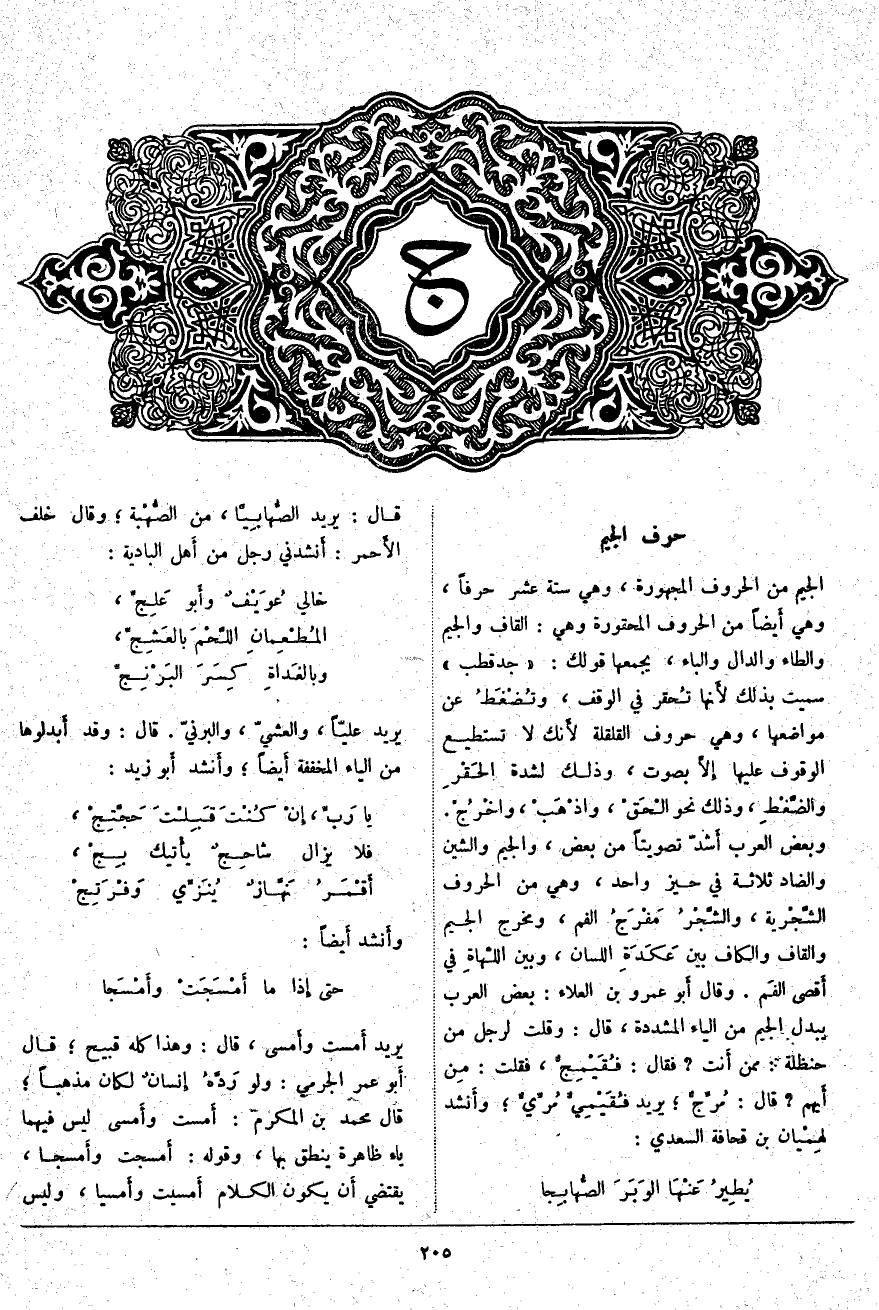 ج
حرف الجيم
الجيم من الحروف المجهورة ، وهي ستة عشر حرفاً ،
وهي أيضاً من الحروف المحقورة وهي : القاف والجيم
والطاء والدال والباء ، يجمعها قولك : « جدقطب »
سميت بذلك لأنها تُحقر في الوقف ، وتُضْغَطُ عن
مواضعها ، وهي حروف القلقلة لأنك لا تستطيع
الوقوف عليها إلاّ بصوت ، وذلك لشدة الحَقْرِ
والضَّغْطِ ، وذلك نحو الْحَقْ ، واذْهَبْ ، واخْرُجْ .
وبعض العرب أَشدّ تصويتاً من بعض ، والجيم والشين
والضاد ثلاثة في حيز واحد ، وهي من الحروف
الشَّجْرية ، والشَّجْرُ مَفْرَجُ الفم ، ومخرج الجيم
والقاف والكاف بين عَكَدَةِ اللسان ، وبين اللَّهاةِ في
أَقصى الفَم . وقال أَبو عمرو بن العلاء : بعض العرب
يبدل الجيم من الياء المشددة ، قال : وقلت لرجل من
حنظلة : ممن أَنت ? فقال : فُقَيْمِجٌّ ، فقلت : مِن
أَيهم ? قال : مُرِّجٌّ ؛ يريد فُقَيْمِيٌّ مُرِّيٌّ ؛ وأَنشد
لهِمْيان بن قحافة السعدي :
يُطِيرُ عَنْها الوَبَرَ الصُّهابِجا
قال : يريد الصُّهابِيَّا ، من الصُّهْبة ؛ وقال خلف
الأَحمر : أَنشدني رجل من أَهل البادية :
خالي عُوَيْفٌ وأَبو عَلِجِّ ،
المُطْعِمانِ اللَّحْمَ بالعَشِجِّ ،
وبالغَداةِ كِسَرَ البَرْنِجِّ
يريد عليّاً ، والعشيّ ، والبرنيّ . قال : وقد أَبدلوها
من الياء المخففة أَيضاً ؛ وأَنشد أَبو زيد :
يا رَبِّ ، إِنْ كُنْتَ قَبِلْتَ حَجَّتِجْ ،
فلا يزال شاحِجٌ يأْتيك بِجْ ،
أَقْمَرُ نَهَّازٌ يُنَزِّي وَفْرَتِجْ
وأَنشد أَيضاً :
حتى إِذا ما أَمْسَجَتْ وأَمْسَجا
يريد أَمست وأَمسى ، قال : وهذا كله قبيح ؛ قال
أَبو عمر الجرمي : ولو رَدَّهُ إِنسانٌ لكان مذهباً ؛
قال محمد بن المكرم : أَمست وأَمسى ليس فيهما
ياء ظاهرة ينطق بها ، وقوله : أَمسجت وأَمسجا ،
يقتضي أَن يكون الكلام أَمسيت وأَمسيا ، وليس
٢٠٥